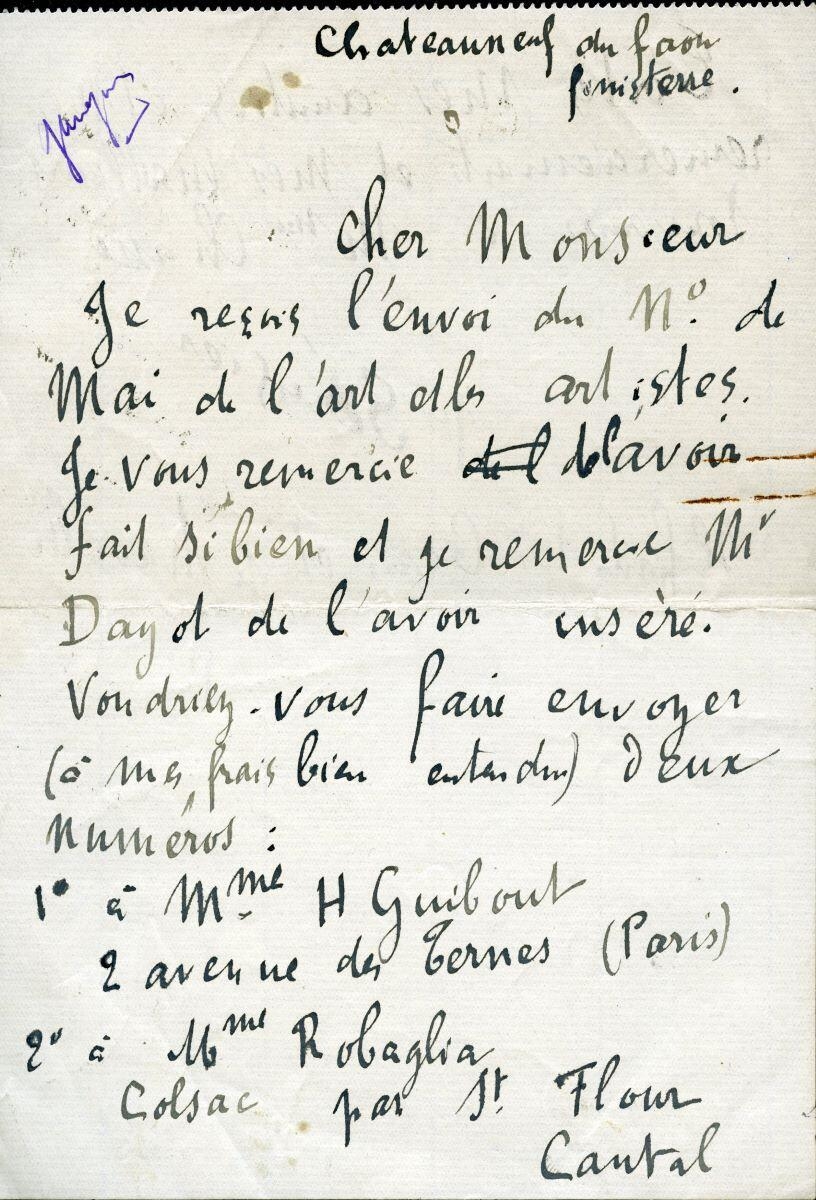 Chateauneuf du faou
finisterre.
Cher Monsieur
Je reçois l'envoi du Nº. de
Mai de l'art et les artistes.
Je vous remercie de l de l'avoir
fait si bien et je remercie Mr
Dayot de l'avoir inséré.
Voudriez-vous faire envoyer
(à mes frais bien entendu) deux
numéros :
1º à Mme H Guibout
2 avenue des Ternes (Paris)
2º à Mme Robaglia
Colsac par St. Flour
Cantal